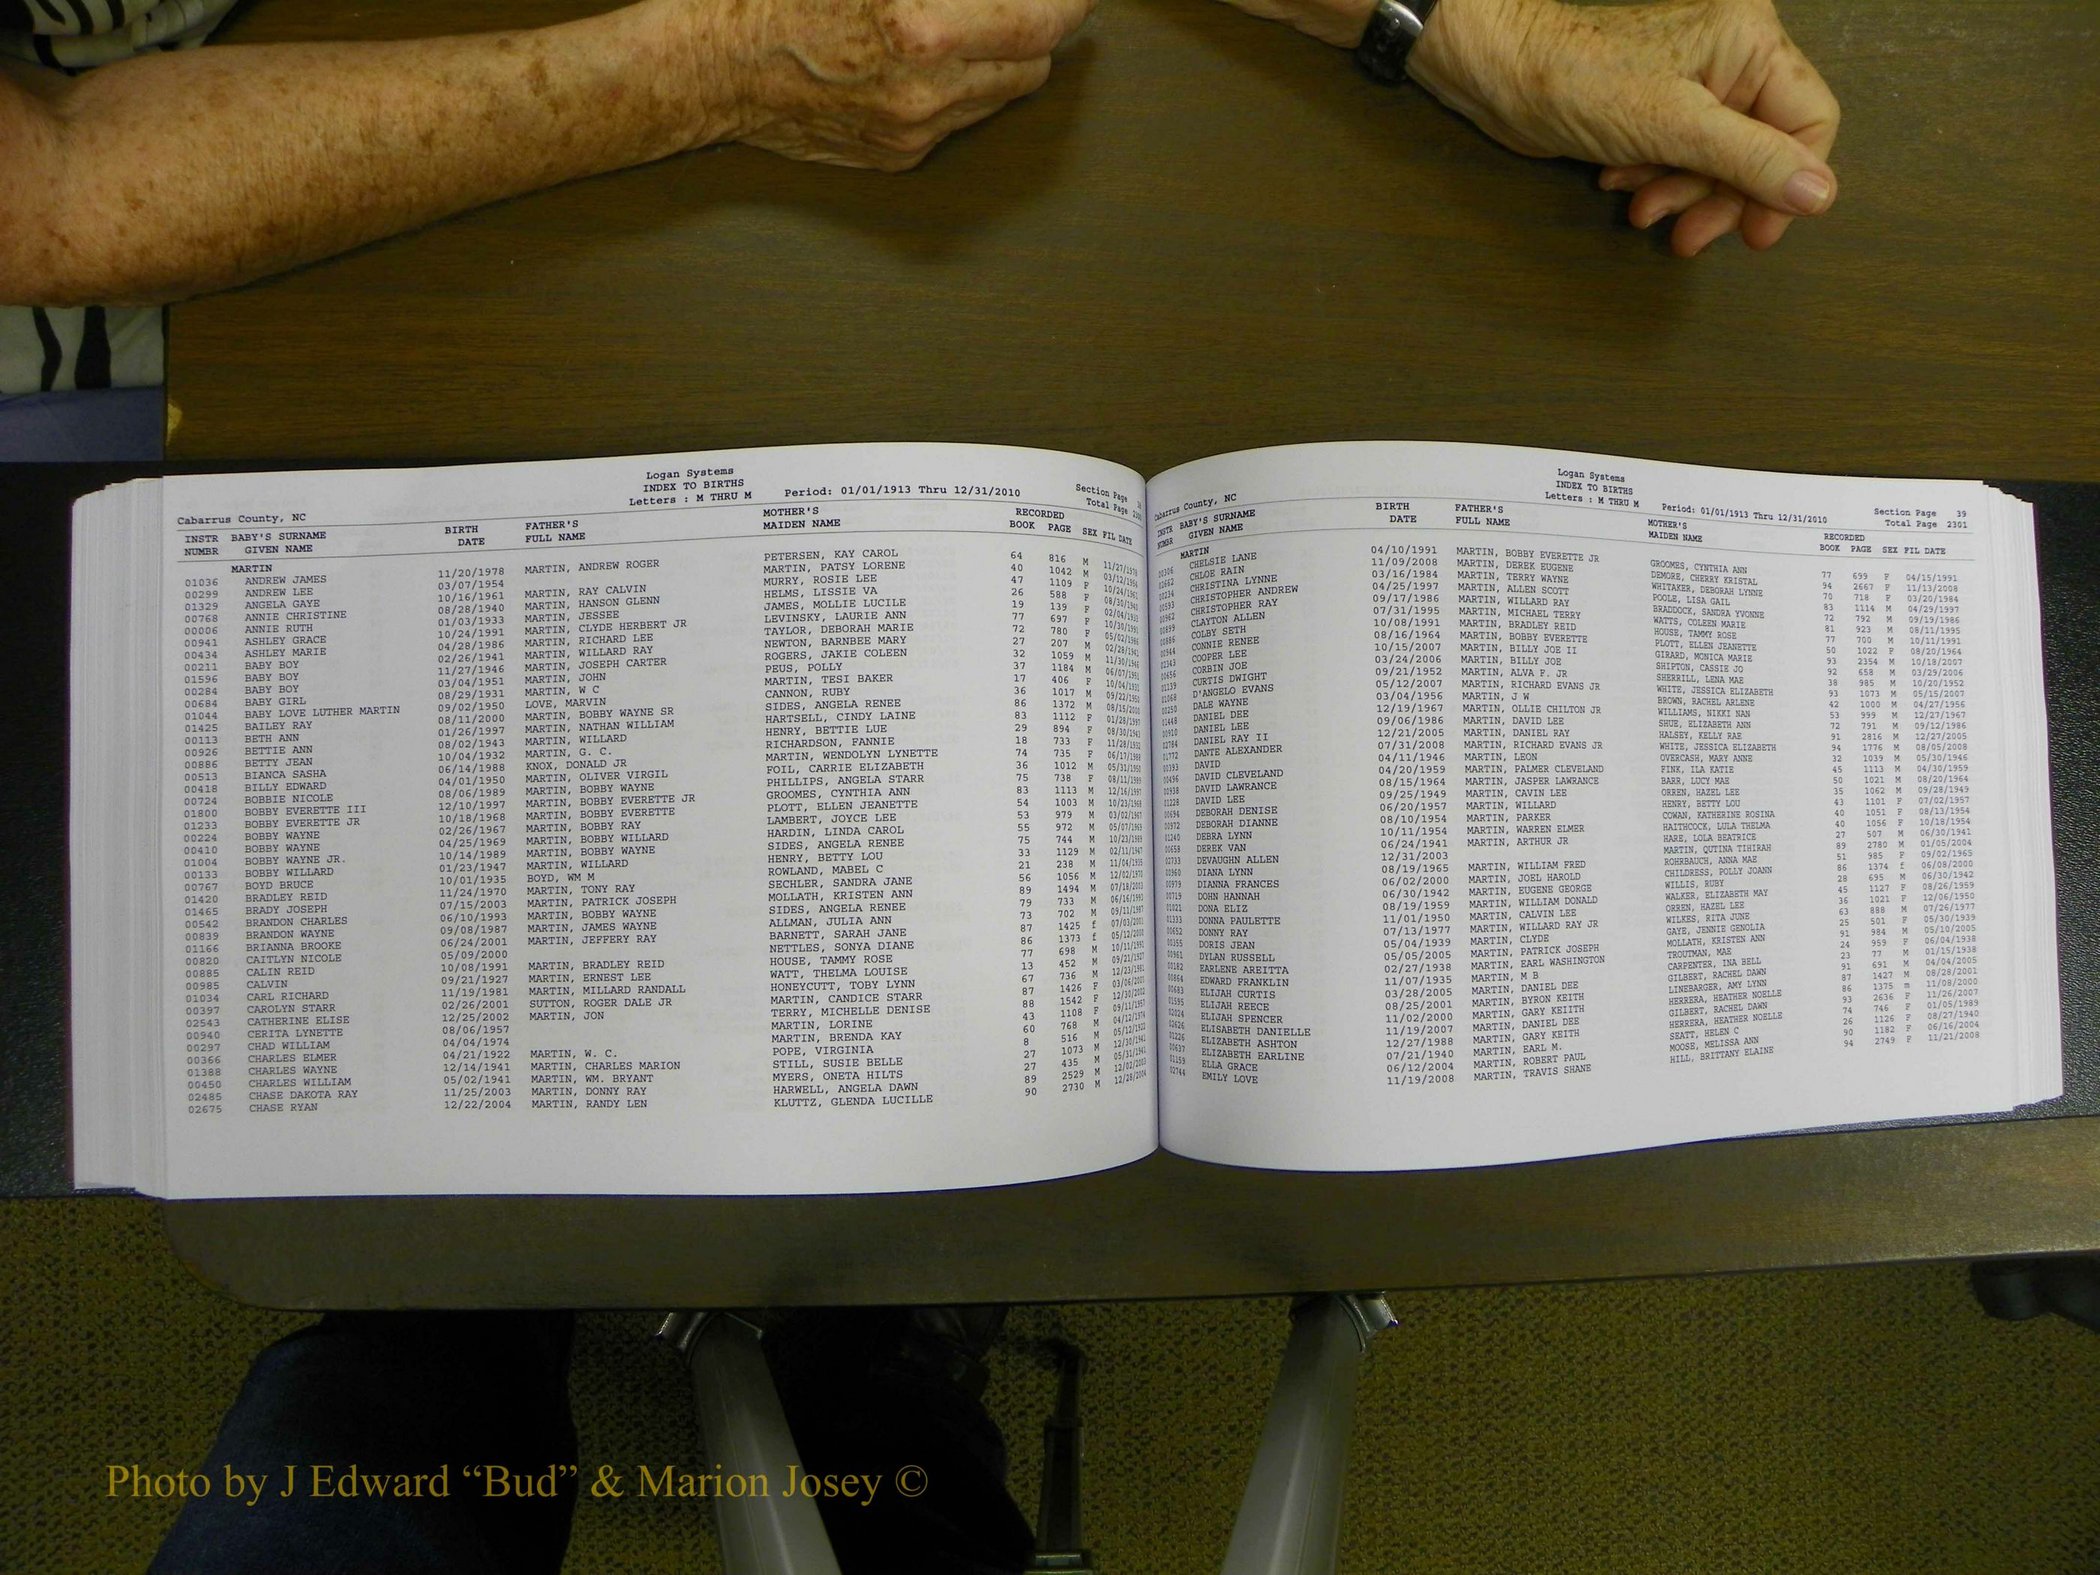 Logan Systems
INDEX TO BIRTHS
Letters : M THRU M Period: 01/01/1913 Thru 12/31/2010 Section Page 38
Cabarrus County, NC Total Page 2300
INSTR BABY'S SURNAME BIRTH FATHER'S MOTHER'S RECORDED
NUMBR GIVEN NAME DATE FULL NAME MAIDEN NAME BOOK PAGE SEX FIL DATE
MARTIN
01036 ANDREW JAMES 11/20/1978 MARTIN, ANDREW ROGER PETERSEN, KAY CAROL 64 816 M 11/27/1978
00299 ANDREW LEE 03/07/1954 MARTIN, PATSY LORENE 40 1042 M 03/12/1954
01329 ANGELA GAYE 10/16/1961 MARTIN, RAY CALVIN MURRY, ROSIE LEE 47 1109 F 10/24/1961
00768 ANNIE CHRISTINE 08/28/1940 MARTIN, HANSON GLENN HELMS, LISSIE VA 26 588 F 08/30/1940
00006 ANNIE RUTH 01/03/1933 MARTIN, JESSEE JAMES, MOLLIE LUCILE 19 139 F 02/04/1933
00941 ASHLEY GRACE 10/24/1991 MARTIN, CLYDE HERBERT JR LEVINSKY, LAURIE ANN 77 697 F 10/30/1991
00434 ASHLEY MARIE 04/28/1986 MARTIN, RICHARD LEE TAYLOR, DEBORAH MARIE 72 780 F 05/02/1986
00211 BABY BOY 02/26/1941 MARTIN, WILLARD RAY NEWTON, BARNBEE MARY 27 207 M 02/28/1941
01596 BABY BOY 11/27/1946 MARTIN, JOSEPH CARTER ROGERS, JAKIE COLEEN 32 1059 M 11/30/1946
00284 BABY BOY 03/04/1951 MARTIN, JOHN PEUS, POLLY 37 1184 M 06/07/1951
00684 BABY GIRL 08/29/1931 MARTIN, W C MARTIN, TESI BAKER 17 406 F 10/04/1931
01044 BABY LOVE LUTHER MARTIN 09/02/1950 LOVE, MARVIN CANNON, RUBY 36 1017 M 09/22/1950
01425 BAILEY RAY 08/11/2000 MARTIN, BOBBY WAYNE SR SIDES, ANGELA RENEE 86 1372 M 08/15/2000
00113 BETH ANN 01/26/1997 MARTIN, NATHAN WILLIAM HARTSELL, CINDY LAINE 83 1112 F 01/28/1997
00926 BETTIE ANN 08/02/1943 MARTIN, WILLARD HENRY, BETTIE LUE 29 894 F 08/30/1943
00886 BETTY JEAN 10/04/1932 MARTIN, G. C. RICHARDSON, FANNIE 18 733 F 11/28/1932
00513 BIANCA SASHA 06/14/1988 KNOX, DONALD JR MARTIN, WENDOLYN LYNETTE 74 735 F 06/17/1988
00418 BILLY EDWARD 04/01/1950 MARTIN, OLIVER VIRGIL FOIL, CARRIE ELIZABETH 36 1012 M 05/31/1950
00724 BOBBIE NICOLE 08/06/1989 MARTIN, BOBBY WAYNE PHILLIPS, ANGELA STARR 75 738 F 08/11/1989
01800 BOBBY EVERETTE III 12/10/1997 MARTIN, BOBBY EVERETTE JR GROOMES, CYNTHIA ANN 83 1113 M 12/16/1997
01233 BOBBY EVERETTE JR 10/18/1968 MARTIN, BOBBY EVERETTE PLOTT, ELLEN JEANETTE 54 1003 M 10/23/1968
00224 BOBBY WAYNE 02/26/1967 MARTIN, BOBBY RAY LAMBERT, JOYCE LEE 53 979 M 03/02/1967
00410 BOBBY WAYNE 04/25/1969 MARTIN, BOBBY WILLARD HARDIN, LINDA CAROL 55 972 M 05/07/1969
01004 BOBBY WAYNE JR. 10/14/1989 MARTIN, BOBBY WAYNE SIDES, ANGELA RENEE 75 744 M 10/23/1989
00133 BOBBY WILLARD 01/23/1947 MARTIN, WILLARD HENRY, BETTY LOU 33 1129 M 02/11/1947
00767 BOYD BRUCE 10/01/1935 BOYD, WM M ROWLAND, MABEL C 21 238 M 11/04/1935
01420 BRADLEY REID 11/24/1970 MARTIN, TONY RAY SECHLER, SANDRA JANE 56 1056 M 12/02/1970
01465 BRADY JOSEPH 07/15/2003 MARTIN, PATRICK JOSEPH MOLLATH, KRISTEN ANN 89 1494 M 07/18/2003
00542 BRANDON CHARLES 06/10/1993 MARTIN, BOBBY WAYNE SIDES, ANGELA RENEE 79 733 M 06/16/1993
00839 BRANDON WAYNE 09/08/1987 MARTIN, JAMES WAYNE ALLMAN, JULIA ANN 73 702 M 09/11/1987
01166 BRIANNA BROOKE 06/24/2001 MARTIN, JEFFERY RAY BARNETT, SARAH JANE 87 1425 f 07/03/2001
00820 CAITLYN NICOLE 05/09/2000 NETTLES, SONYA DIANE 86 1373 f 05/12/2000
00885 CALIN REID 10/08/1991 MARTIN, BRADLEY REID HOUSE, TAMMY ROSE 77 698 M 10/11/1991
00985 CALVIN 09/21/1927 MARTIN, ERNEST LEE WATT, THELMA LOUISE 13 452 M 09/21/1927
01034 CARL RICHARD 11/19/1981 MARTIN, MILLARD RANDALL HONEYCUTT, TOBY LYNN 67 736 M 12/23/1981
00397 CAROLYN STARR 02/26/2001 SUTTON, ROGER DALE JR MARTIN, CANDICE STARR 87 1426 F 03/06/2001
02543 CATHERINE ELISE 12/25/2002 MARTIN, JON TERRY, MICHELLE DENISE 88 1542 F 12/30/2002
00940 CERITA LYNETTE 08/06/1957 MARTIN, LORINE 43 1108 F 09/11/1957
00297 CHAD WILLIAM 04/04/1974 MARTIN, BRENDA KAY 60 768 M 04/12/1974
00366 CHARLES ELMER 04/21/1922 MARTIN, W. C. POPE, VIRGINIA 8 516 M 05/12/1922
01388 CHARLES WAYNE 12/14/1941 MARTIN, CHARLES MARION STILL, SUSIE BELLE 27 1073 M 12/30/1941
00450 CHARLES WILLIAM 05/02/1941 MARTIN, WM. BRYANT MYERS, ONETA HILTS 27 435 M 05/31/1941
02485 CHASE DAKOTA RAY 11/25/2003 MARTIN, DONNY RAY HARWELL, ANGELA DAWN 89 2529 M 12/02/2003
02675 CHASE RYAN 12/22/2004 MARTIN, RANDY LEN KLUTTZ, GLENDA LUCILLE 90 2730 M 12/28/2004
Logan Systems
INDEX TO BIRTHS
Letters : M THRU M Period: 01/01/1913 Thru 12/31/2010 Section Page 39
Cabarrus County, NC Total Page 2301
INSTR BABY'S SURNAME BIRTH FATHER'S MOTHER'S RECORDED
NUMBR GIVEN NAME DATE FULL NAME MAIDEN NAME BOOK PAGE SEX FIL DATE
MARTIN
00306 CHELSIE LANE 04/10/1991 MARTIN, BOBBY EVERETTE JR GROOMES, CYNTHIA ANN 77 699 F 04/15/1991
02662 CHLOE RAIN 11/09/2008 MARTIN, DEREK EUGENE DEMORE, CHERRY KRISTAL 94 2667 F 11/13/2008
00234 CHRISTINA LYNNE 03/16/1984 MARTIN, TERRY WAYNE WHITAKER, DEBORAH LYNNE 70 718 F 03/20/1984
00593 CHRISTOPHER ANDREW 04/25/1997 MARTIN, ALLEN SCOTT POOLE, LISA GAIL 83 1114 M 04/29/1997
00962 CHRISTOPHER RAY 09/17/1986 MARTIN, WILLARD RAY BRADDOCK, SANDRA YVONNE 72 792 M 09/19/1986
00899 CLAYTON ALLEN 07/31/1995 MARTIN, MICHAEL TERRY WATTS, COLEEN MARIE 81 923 M 08/11/1995
00886 COLBY SETH 10/08/1991 MARTIN, BRADLEY REID HOUSE, TAMMY ROSE 77 700 M 10/11/1991
00944 CONNIE RENEE 08/16/1964 MARTIN, BOBBY EVERETTE PLOTT, ELLEN JEANETTE 50 1022 F 08/20/1964
02343 COOPER LEE 10/15/2007 MARTIN, BILLY JOE II GIRARD, MONICA MARIE 93 2354 M 10/18/2007
00656 CORBIN JOE 03/24/2006 MARTIN, BILLY JOE SHIPTON, CASSIE JO 92 658 M 03/29/2006
01139 CURTIS DWIGHT 09/21/1952 MARTIN, ALVA F. JR SHERRILL, LENA MAE 38 985 M 10/20/1952
01068 D'ANGELO EVANS 05/12/2007 MARTIN, RICHARD EVANS JR WHITE, JESSICA ELIZABETH 93 1073 M 05/15/2007
00250 DALE WAYNE 03/04/1956 MARTIN, J W BROWN, RACHEL ARLENE 42 1000 M 04/27/1956
01448 DANIEL DEE 12/19/1967 MARTIN, OLLIE CHILTON JR WILLIAMS, NIKKI NAN 53 999 M 12/27/1967
00910 DANIEL LEE 09/06/1986 MARTIN, DAVID LEE SHUE, ELIZABETH ANN 72 791 M 09/12/1986
02784 DANIEL RAY II 12/21/2005 MARTIN, DANIEL RAY HALSEY, KELLY RAE 91 2816 M 12/27/2005
01772 DANTE ALEXANDER 07/31/2008 MARTIN, RICHARD EVANS JR WHITE, JESSICA ELIZABETH 94 1776 M 08/05/2008
00393 DAVID 04/11/1946 MARTIN, LEON OVERCASH, MARY ANNE 32 1039 M 05/30/1946
00496 DAVID CLEVELAND 04/20/1959 MARTIN, PALMER CLEVELAND FINK, ILA KATIE 45 1113 M 04/30/1959
00938 DAVID LAWRANCE 08/15/1964 MARTIN, JASPER LAWRANCE BARR, LUCY MAE 50 1021 M 08/20/1964
01228 DAVID LEE 09/25/1949 MARTIN, CAVIN LEE ORREN, HAZEL LEE 35 1062 M 09/28/1949
00694 DEBORAH DENISE 06/20/1957 MARTIN, WILLARD HENRY, BETTY LOU 43 1101 F 07/02/1957
00972 DEBORAH DIANNE 08/10/1954 MARTIN, PARKER COWAN, KATHERINE ROSINA 40 1051 F 08/13/1954
01240 DEBRA LYNN 10/11/1954 MARTIN, WARREN ELMER HAITHCOCK, LULA THELMA 40 1056 F 10/18/1954
00658 DEREK VAN 06/24/1941 MARTIN, ARTHUR JR HARE, LOLA BEATRICE 27 507 M 06/30/1941
02733 DEVAUGHN ALLEN 12/31/2003 MARTIN, QUTINA TIHIRAH 89 2780 M 01/05/2004
00960 DIANA LYNN 08/19/1965 MARTIN, WILLIAM FRED ROHRBAUCH, ANNA MAE 51 985 F 09/02/1965
00979 DIANNA FRANCES 06/02/2000 MARTIN, JOEL HAROLD CHILDRESS, POLLY JOANN 86 1374 f 06/08/2000
00719 DOHN HANNAH 06/30/1942 MARTIN, EUGENE GEORGE WILLIS, RUBY 28 695 M 06/30/1942
01021 DONA ELIZ 08/19/1959 MARTIN, WILLIAM DONALD WALKER, ELIZABETH MAY 45 1127 F 08/26/1959
01333 DONNA PAULETTE 11/01/1950 MARTIN, CALVIN LEE ORREN, HAZEL LEE 36 1021 F 12/06/1950
00652 DONNY RAY 07/13/1977 MARTIN, WILLARD RAY JR WILKES, RITA JUNE 63 888 M 07/26/1977
00355 DORIS JEAN 05/04/1939 MARTIN, CLYDE GAYE, JENNIE GENOLIA 25 501 F 05/30/1939
00961 DYLAN RUSSELL 05/05/2005 MARTIN, PATRICK JOSEPH MOLLATH, KRISTEN ANN 91 984 M 05/10/2005
00182 EARLENE AREITTA 02/27/1938 MARTIN, EARL WASHINGTON TROUTMAN, MAE 24 959 F 06/04/1938
00864 EDWARD FRANKLIN 11/07/1935 MARTIN, M B CARPENTER, INA BELL 23 77 M 01/15/1938
00683 ELIJAH CURTIS 03/28/2005 MARTIN, DANIEL DEE GILBERT, RACHEL DAWN 91 691 M 04/04/2005
01595 ELIJAH REECE 08/25/2001 MARTIN, BYRON KEITH LINEBARGER, AMY LYNN 87 1427 M 08/28/2001
02024 ELIJAH SPENCER 11/02/2000 MARTIN, GARY KEIITH HERRERA, HEATHER NOELLE 86 1375 m 11/08/2000
02626 ELISABETH DANIELLE 11/19/2007 MARTIN, DANIEL DEE GILBERT, RACHEL DAWN 93 2636 F 11/26/2007
01226 ELIZABETH ASHTON 12/27/1988 MARTIN, GARY KEITH HERRERA, HEATHER NOELLE 74 746 F 01/05/1989
00637 ELIZABETH EARLINE 07/21/1940 MARTIN, EARL M. SEATT, HELEN C 26 1126 F 08/27/1940
01159 ELLA GRACE 06/12/2004 MARTIN, ROBERT PAUL MOOSE, MELISSA ANN 90 1182 F 06/16/2004
02744 EMILY LOVE 11/19/2008 MARTIN, TRAVIS SHANE HILL, BRITTANY ELAINE 94 2749 F 11/21/2008
Photo by J Edward “Bud” & Marion Josey ©